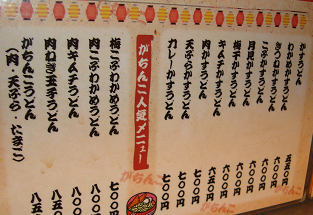 かすうどん 五五〇円
わかめかすうどん 六〇〇円
きつねかすうどん 六〇〇円
こぶかすうどん 六〇〇円
月見かすうどん 六〇〇円
梅干かすうどん 六〇〇円
キムチかすうどん 六〇〇円
肉かすうどん 六五〇円
天ぷらかすうどん 七〇〇円
カレーかすうどん 七〇〇円
がちんこ人気メニュー
梅こぶわかめうどん 七〇〇
肉こぶわかめうどん 八〇〇
肉キムチうどん 八〇〇
肉ねぎ玉子うどん 八五
がちんこうどん 八五
(肉・天ぷら・たまご)
がちんこ
がちんこ
がちんこ